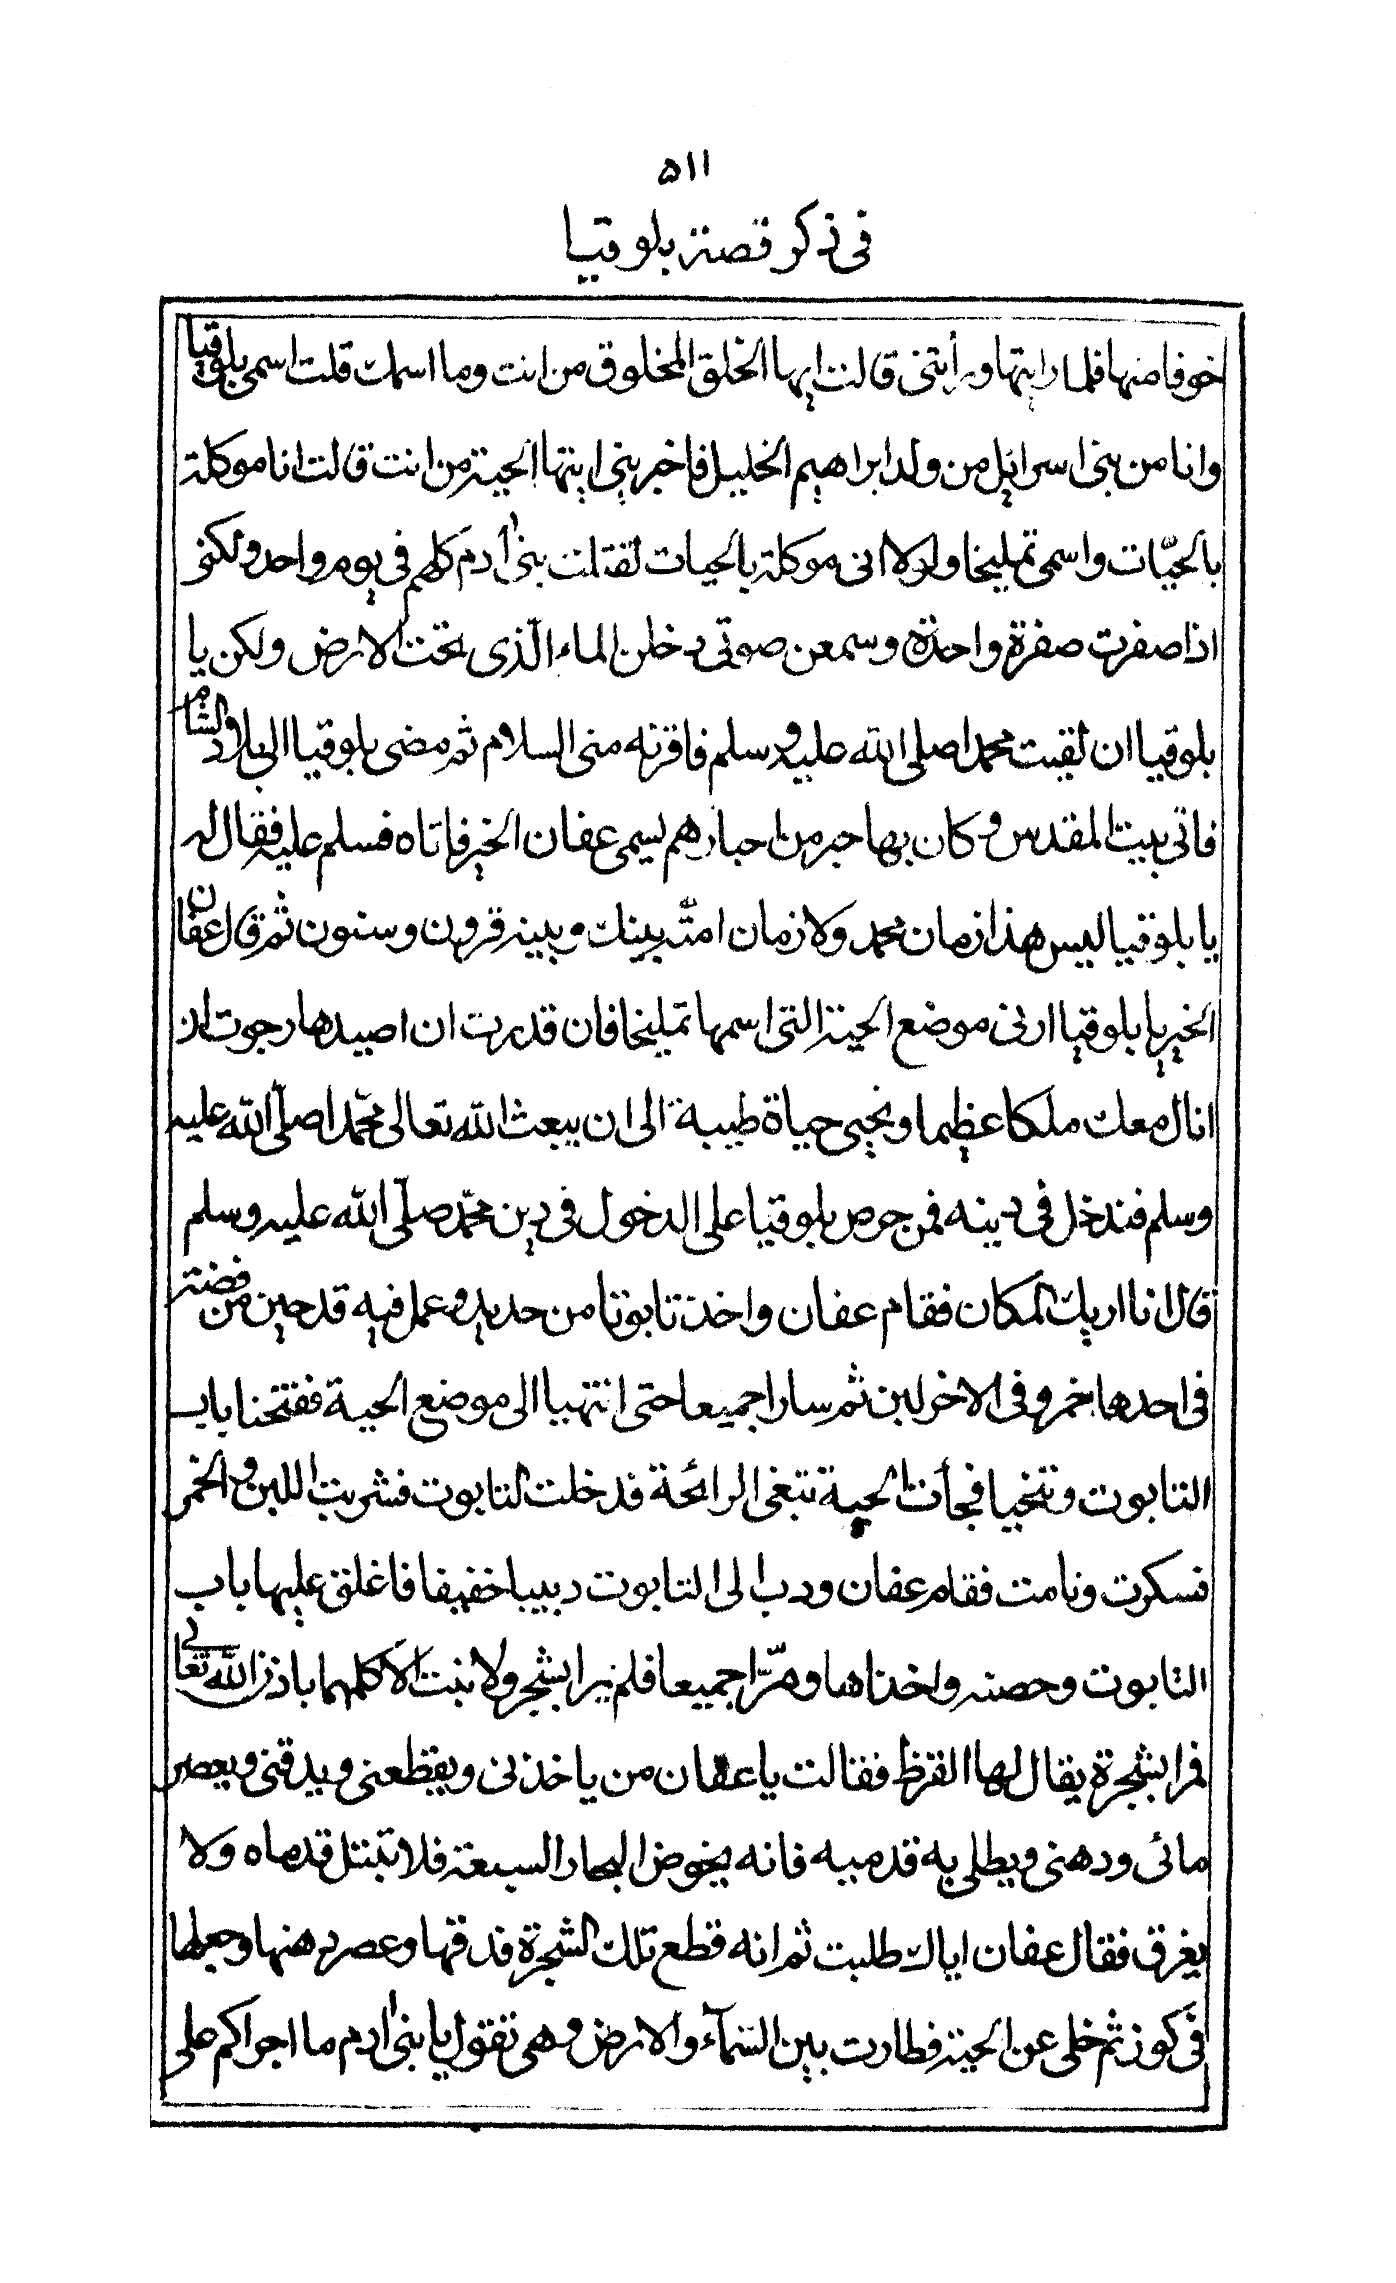 ٥١١
فى ذكر قصة بلوقيا
خوفا منها فلما رايتها ورأيتنى قالت ايها الخلق المخلوق من انت وما اسمك قلت اسمى بلوقيا
وانا من بنى اسرائيل من ولد ابراهيم الخليل فاخبرينى ايتها الحية من انت قالت انا موكلة
بالحيّات واسمى تمليخا ولولا انى موكلة بالحيات لقتلت بنى آدم كلهم فى يوم واحد ولكنى
اذا صفرت صفرة واحدة وسمعن صوتى دخلن الماء الّذى تحت الارض ولكن يا
بلوقيا ان لقيت محمدا صلى الله عليه وسلم فاقرئه منى السلام ثم مضى بلوقيا الى بلاد الشام
فاتى بيت المقدس وكان بها حبر من احبارهم يسمى عفان الخير فاتاه فسلم عليه فقال له
يا بلوقيا ليس هذا زمان محمد ولا زمان امته بينك وبينه قرون وسنون ثم قال عفان
الخير يا بلوقيا ارنى موضع الحية التى اسمها تمليخا فان قدرت ان اصيدها رجوت ان
انال معك ملكا عظيما ونحيى حياة طيبة الى ان يبعث الله تعالى محمّدا صلّى الله عليه
وسلم فندخل فى دينه فمن حرص بلوقيا على الدخول فى دين محمّد صلّى الله عليه وسلم
قال انا اريك المكان فقام عفان واخذ تابوتا من حديد وعمل فيه قدحين من فضة
فى احدها خمر وفى الاخر لبن ثم سارا جميعا حتى انتهيا الى موضع الحية ففتحنا باب
التابوت وتنحيا فجأت الحية تبتغى الرائحة فدخلت التابوت فشربت اللبن والخمر
فسكرت ونامت فقام عفان ودب الى التابوت دبيبا خفيفا فاغلق عليها باب
التابوت وحصنه واخذاها ومرّا جميعا فلم يمرا بشجر ولا نبت الا كلمهما باذن الله تعالى
فمرا بشجرة يقال لها القرظ فقالت يا عفان من ياخذنى ويقطعنى ويدقنى ويعصر
مائى ودهنى ويطلى به قدميه فانه يخوض البحار السبعة فلا تبتل قدماه ولا
يغرق فقال عفان اياك طلبت ثم انه قطع تلك الشجرة فدقها وعصر دهنها وجعلها
فى كوز ثم خلى عن الحية فطارت بين السّمآء والارض وهى تقول يا بنى ادم ما اجراكم على